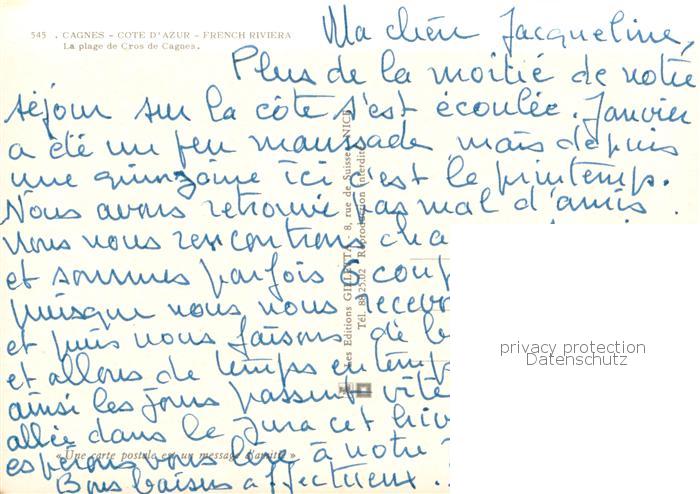 545 . CAGNES - COTE D'AZUR - FRENCH RIVIERA
La plage de Cros de Cagnes.
Ma chère Jacqueline,
Plus de la moitié de notre
séjour sur la côte s'est écoulée. Janvier
a été un peu maussade mais depuis
une quinzaine ici c'est le printemps.
Nous avons retrouvé pas mal d'amis.
nous nous rencontrons cha
et sommes parfois 6 coup
puisque nous nous recevo
et puis nous faisons de b
et allons de temps en temp
ainsi les jours passent vite
allée dans le Jura cet hiv
espérons vous lire à notre
Bons baisers affectueux .
Les Editions GILLETTA - 8, rue de Suisse - NICE
Tél. 88.25.02 Reproduction Interdite
« Une carte postale est un message d'amitié »
privacy protection
Datenschutz